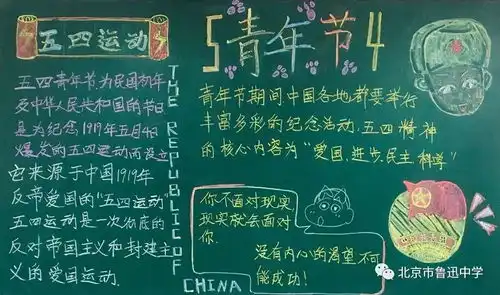 五四运动
五四青年节,为民国初年
及中华人民共和国的节日
是为纪念1919年五月4日
爆发的五四运动而设立
它来源于中国1919年
反帝爱国的“五四运动”
五四运动是一次彻底的
反对帝国主义和封建主
义的爱国运动.
THE REPUBLIC OF
CHINA
5青年节4
青年节期间中国各地都要举行
丰富多彩的纪念活动,五四精神
的核心内容为“爱国、进步、民主、科学”
你不面对现实
现实就会面对
你.
没有内心的渴望,不可
能成功!
北京市鲁迅中学